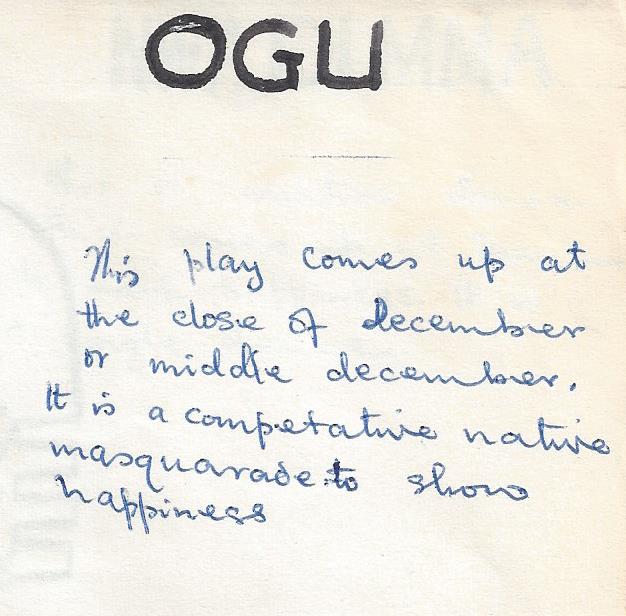 OGU
This play comes up at
the close of december
or middle december.
It is a competative native
masquarade to show
happiness